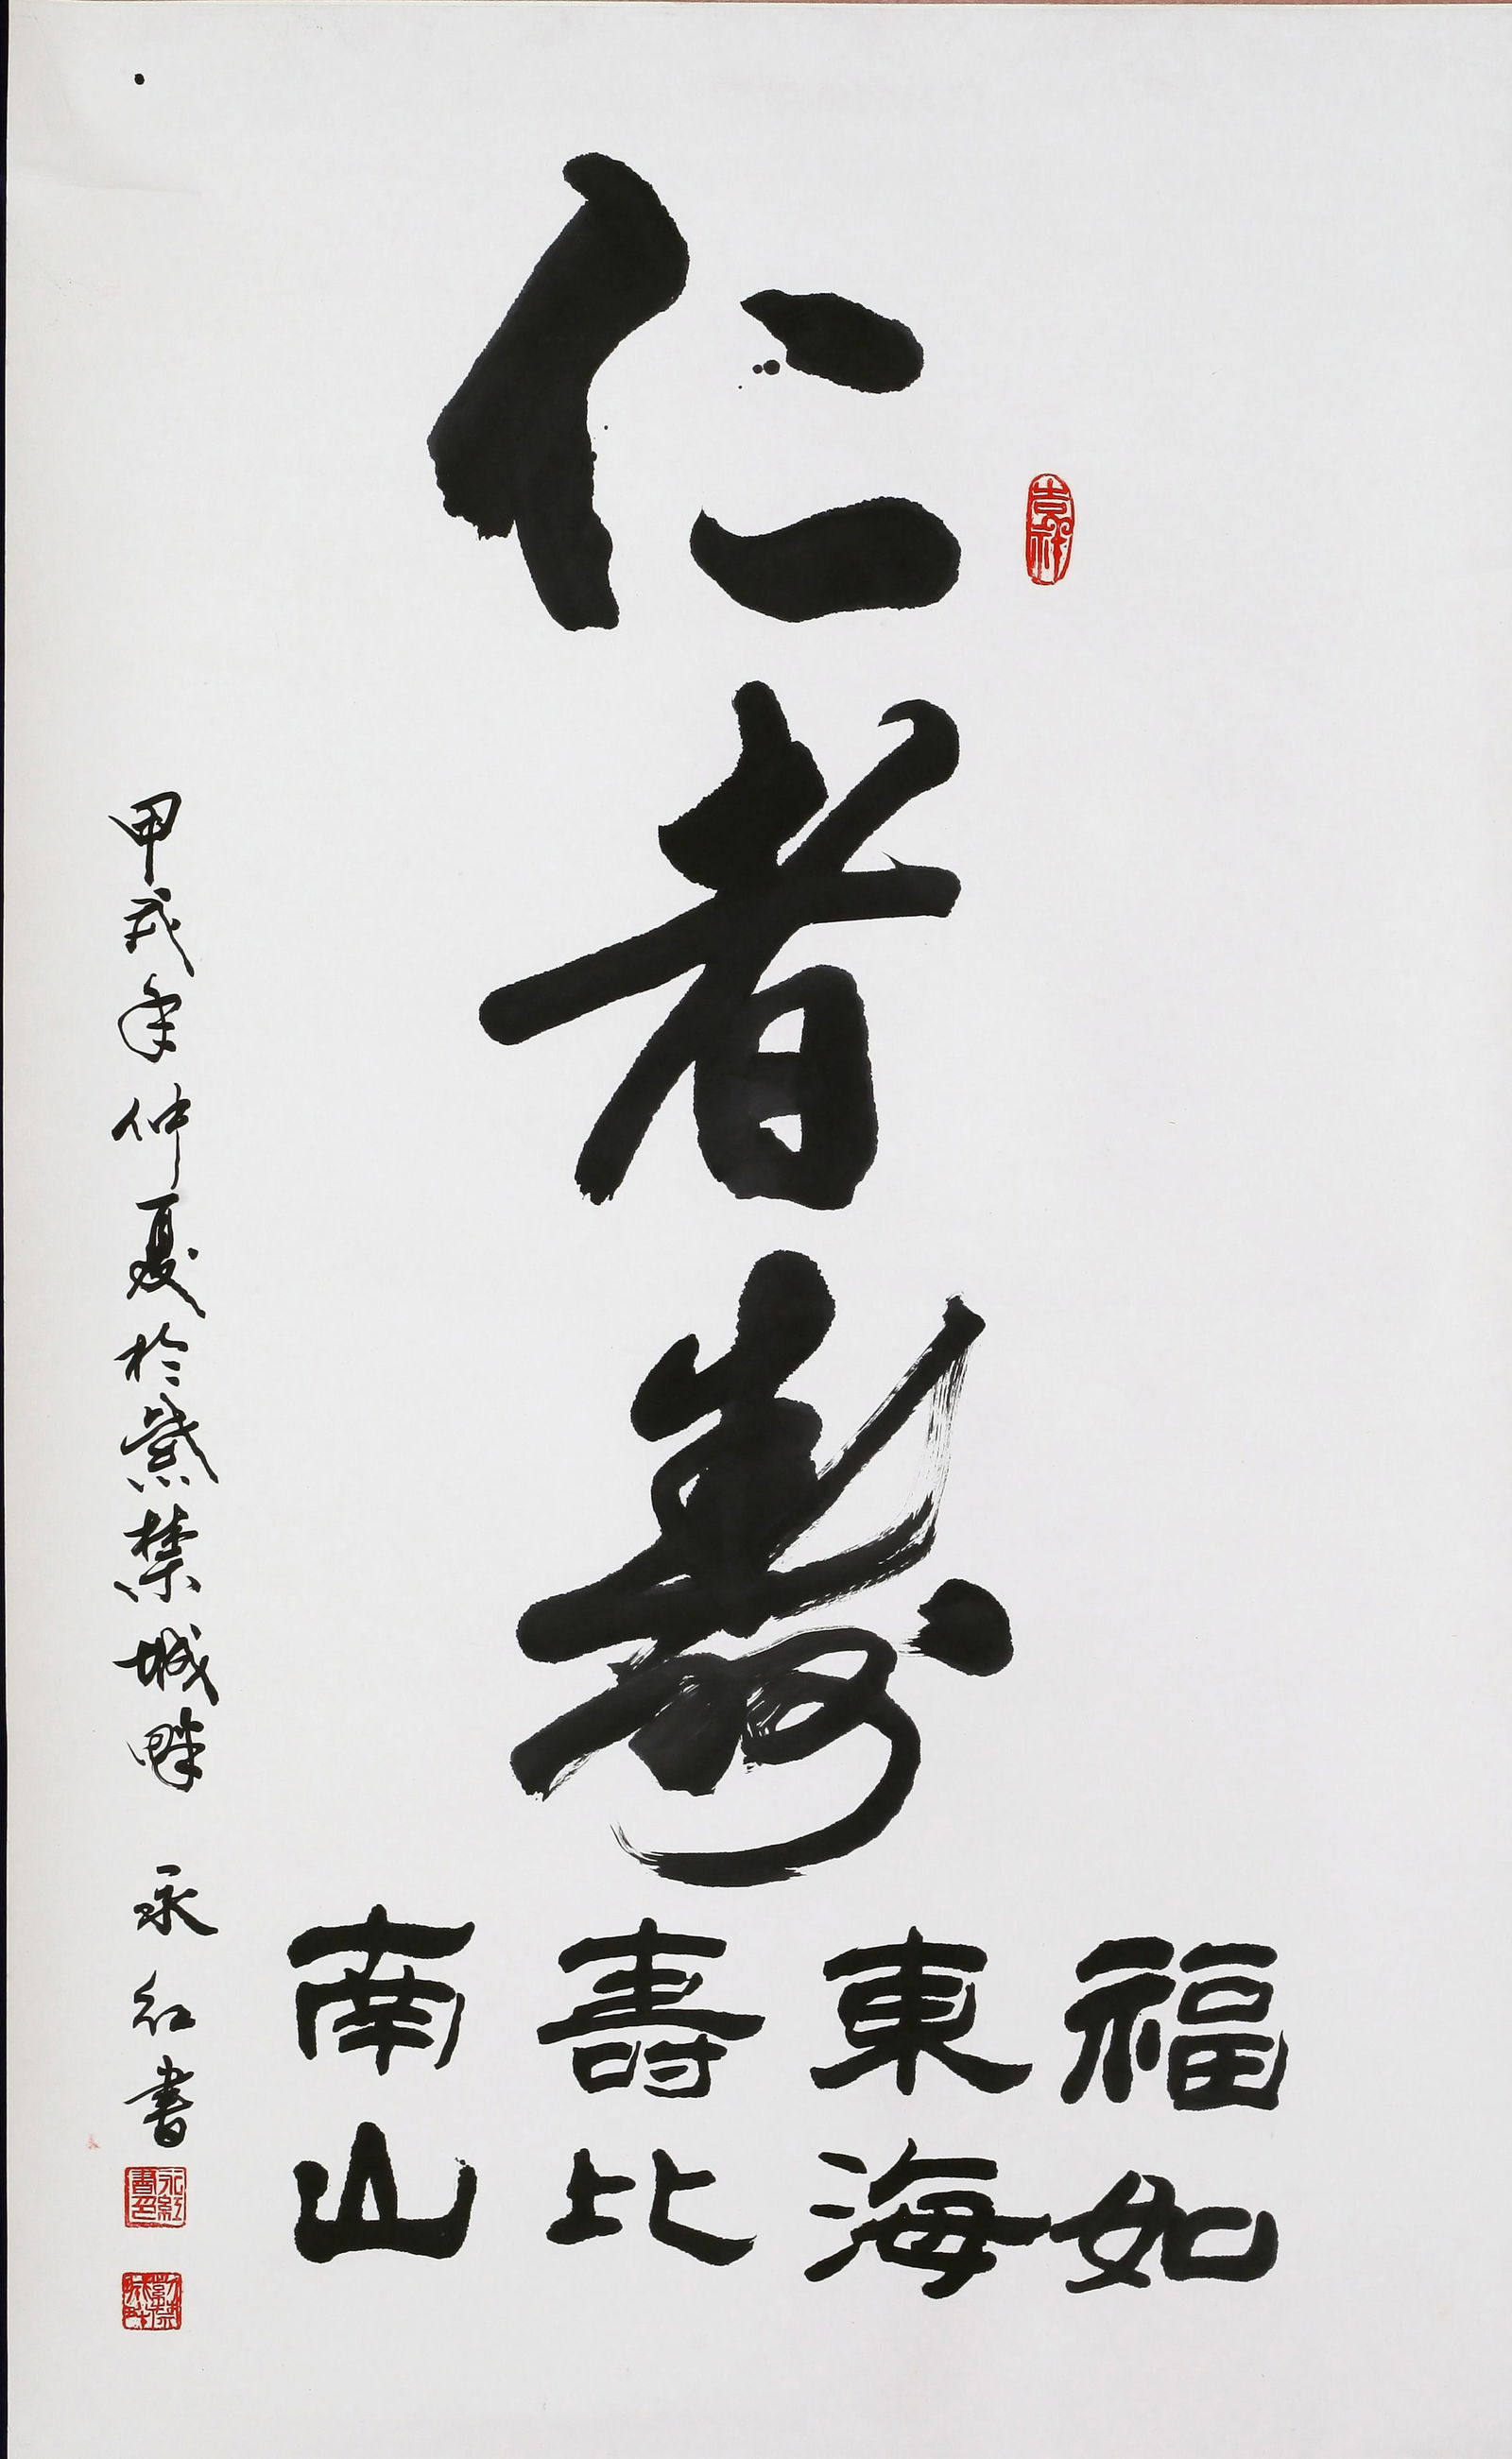 仁者壽
福如
東海
壽比
南山
甲戌年仲夏於紫禁城畔 永红書
吉祥
永紅書印